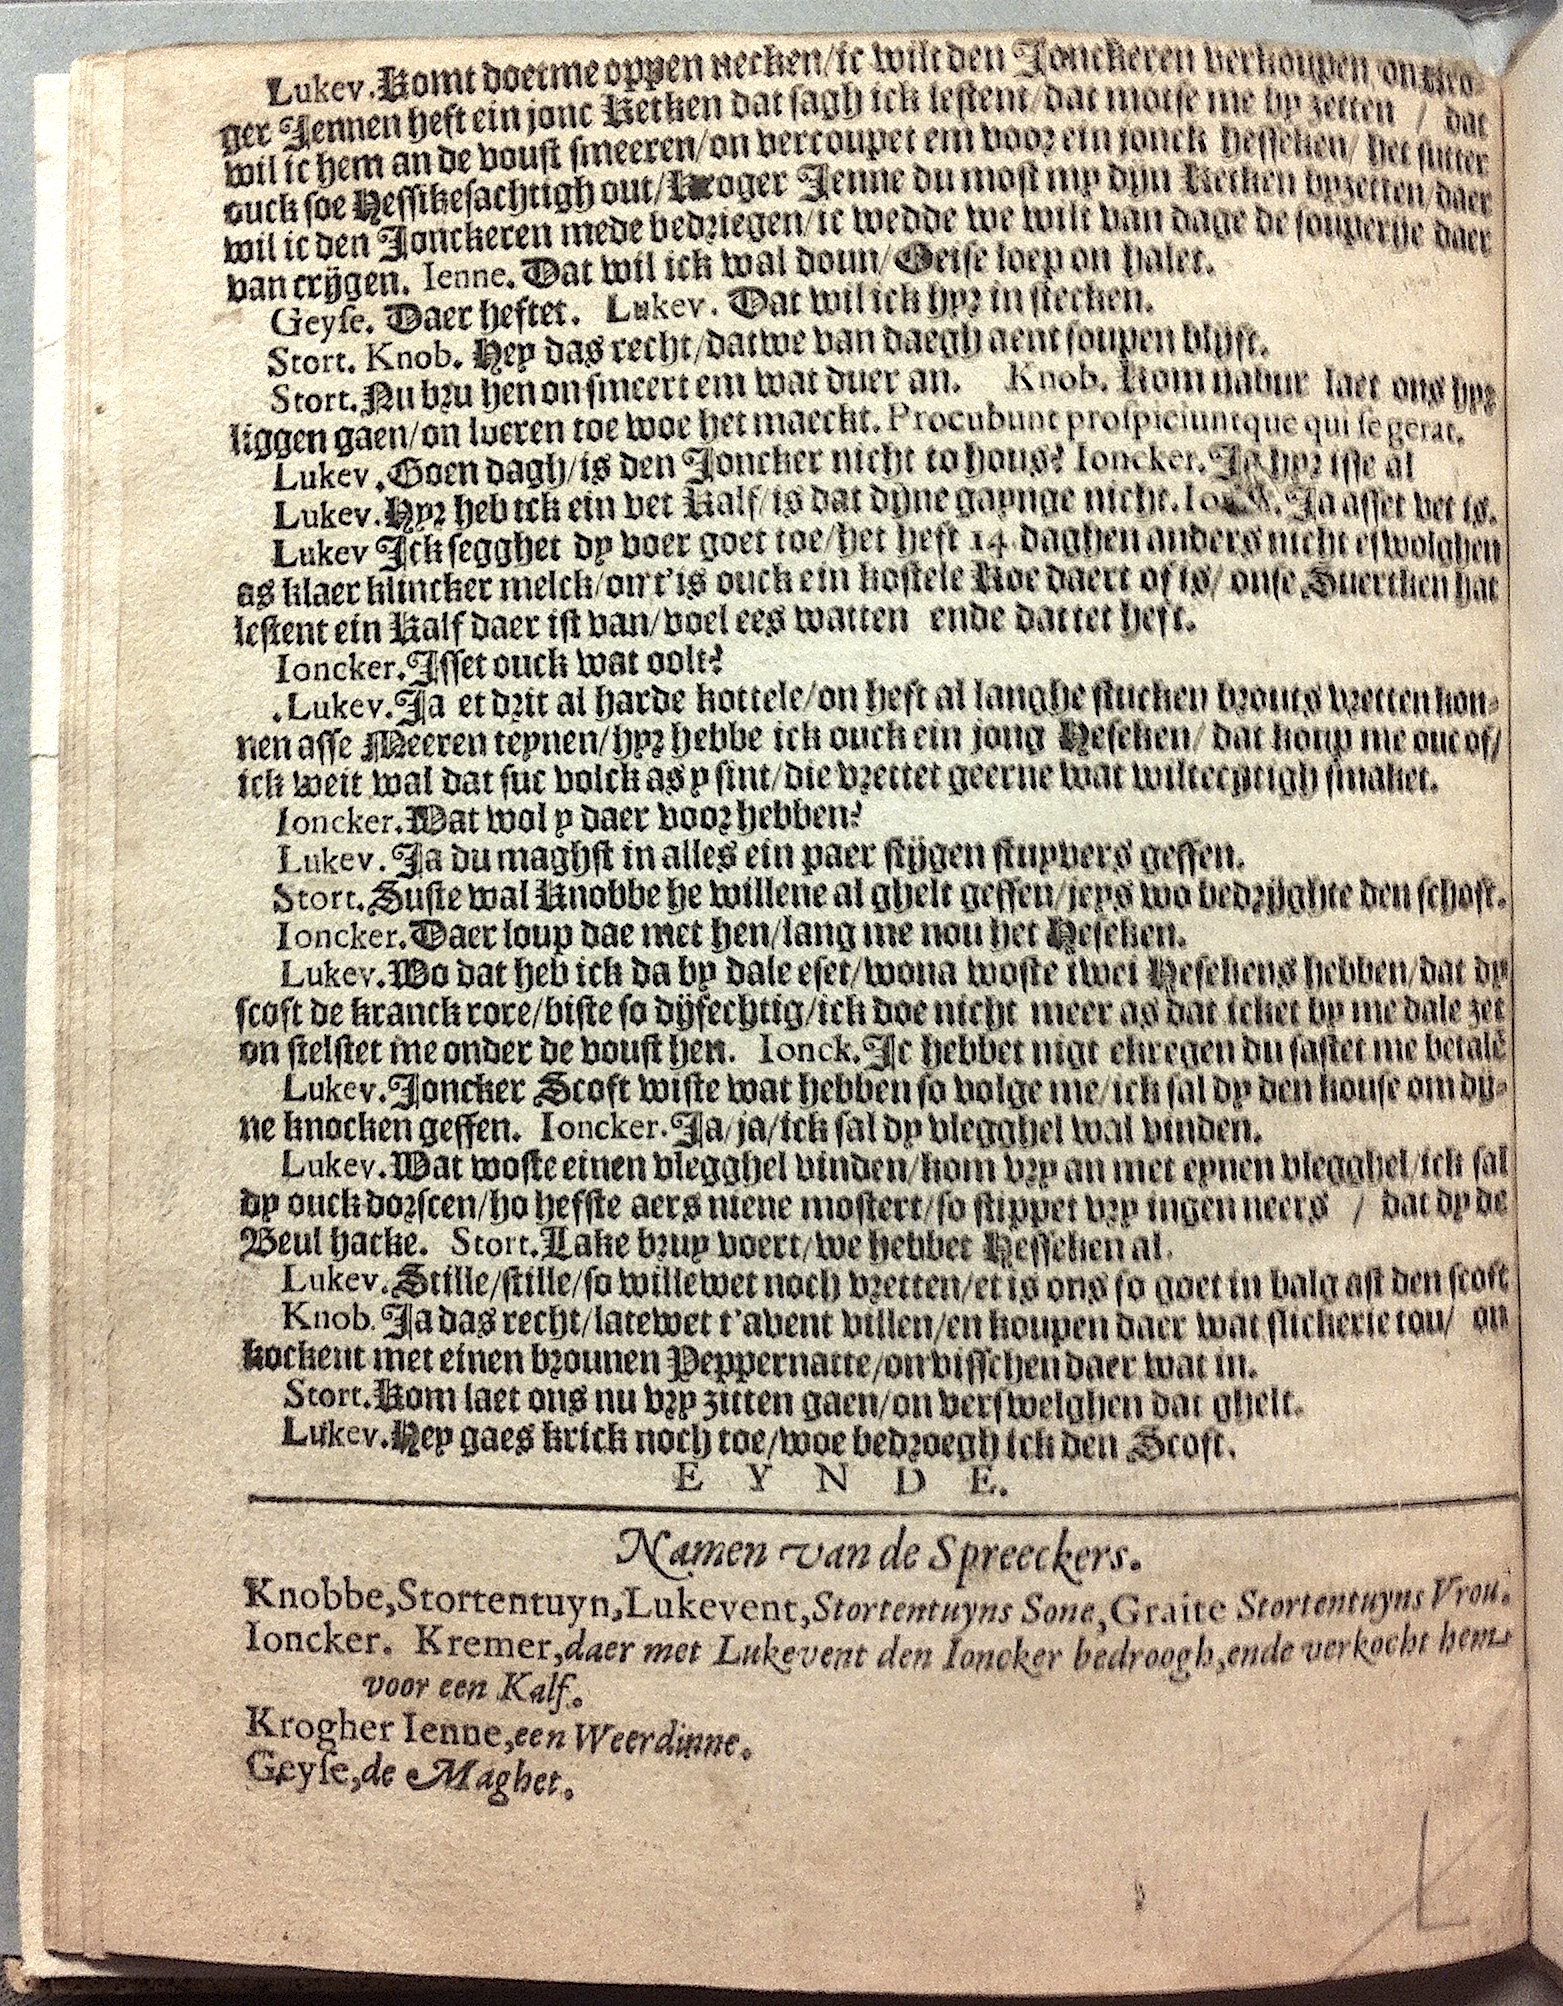 Lukev. Komt doetme oppen necken/ic wilt den Jonckeren verkoupen/on Kro-
ger Jennen heft ein jonc Ketken dat sagh ick lestent/dat motse me by zetten / dat
wil ic hem an de voust smeeren/on vercoupet em voor ein jonck Hesseken/ het sutter
ouck soe Hessikesachtigh out/Kroger Jenne du most my dijn Ketken byzetten/daer
wil ic den Jonckeren mede bedriegen/ic wedde we wilt van dage de souperije daer
van crijgen. Ienne. Dat wil ick wal doun/Geise loep on halet.
Geyse. Daer heftet. Lukev. Dat wil ick hyr in stecken.
Stort. Knob. Hey das recht/datwe van daegh aent soupen blijft.
Stort. Nu bru hen on smeert em wat duer an. Knob. Kom nabur laet ons hyr
liggen gaen/on lueren toe woe het maeckt. Procubunt prospiciuntque qui se gerat.
Lukev. Goen dagh/is den Joncker nicht to hous? Ioncker. Ja hyr isse al
Lukev. Hyr heb ick ein vet Kalf/is dat dijne gaynge nicht. Ionck. Ja asset vet is.
Lukev Ick segghet dy voer goet toe/het heft 14 daghen anders nicht eswolghen
as klaer klincker melck/on t'is ouck ein kostele Koe daert of is/ onse Suertken hat
lestent ein Kalf daer ist van/voel ees watten ende dattet heft.
Ioncker. Isset ouck wat oolt?
Lukev. Ja et drit al harde kottele/on heft al langhe stucken brouts vretten kon-
nen asse Meeren teynen/hyr hebbe ick ouck ein jong Heseken/ dat koup me ouc of/
ick weit wal dat suc volck as y sint/die vrettet geerne wat wiltecytigh smaket.
Ioncker. Wat wol y daer voor hebben?
Lukev. Ja du maghst in alles ein paer stijgen stuyvers geffen.
Stort. Suste wal Knobbe he willene al ghelt geffen/jeys wo bedrijghte den schoft.
Ioncker. Daer loup dae met hen/lang me nou het Heseken.
Lukev. Wo dat heb ick da by dale eset/wona woste twei Hesekens hebben/dat dy
scoft de kranck rore/biste so dijfechtig/ick doe nicht meer as dat icket by me dale zet
on stelstet me onder de voust hen. Ionck. Ic hebbet nigt ekregen du sastet me betalē
Lukev. Joncker Scoft wiste wat hebben so volge me/ick sal dy den kouse om dij-
ne knocken geffen. Ioncker. Ja/ja/ick sal dy vlegghel wal vinden.
Lukev. Wat woste einen vlegghel vinden/kom vry an met eynen vlegghel/ick sal
dy ouck dorscen/ho hefste aers niene mostert/so stippet vry ingen neers / dat dy de
Beul hacke. Stort. Lake bruy voert/we hebbet Hesseken al.
Lukev. Stille/stille/so willewet noch vretten/et is ons so goet in balg ast den scoft
Knob. Ja das recht/latewet t'avent villen/en koupen daer wat slickerie tou/ on
kockent met einen brounen Peppernatte/on visschen daer wat in.
Stort. Kom laet ons nu vry zitten gaen/on verswelghen dat ghelt.
Lukev. Hey gaes krick noch toe/woe bedroegh ick den Scoft.
E Y N D E.
Namen van de Spreeckers.
Knobbe, Stortentuyn, Lukevent, Stortentuyns Sone, Graite Stortentuyns Vrou.
Ioncker. Kremer, daer met Lukevent den Ioncker bedroogh, ende verkocht hem
voor een Kalf.
Krogher Ienne, een Weerdinne.
Geyse, de Maghet.
L